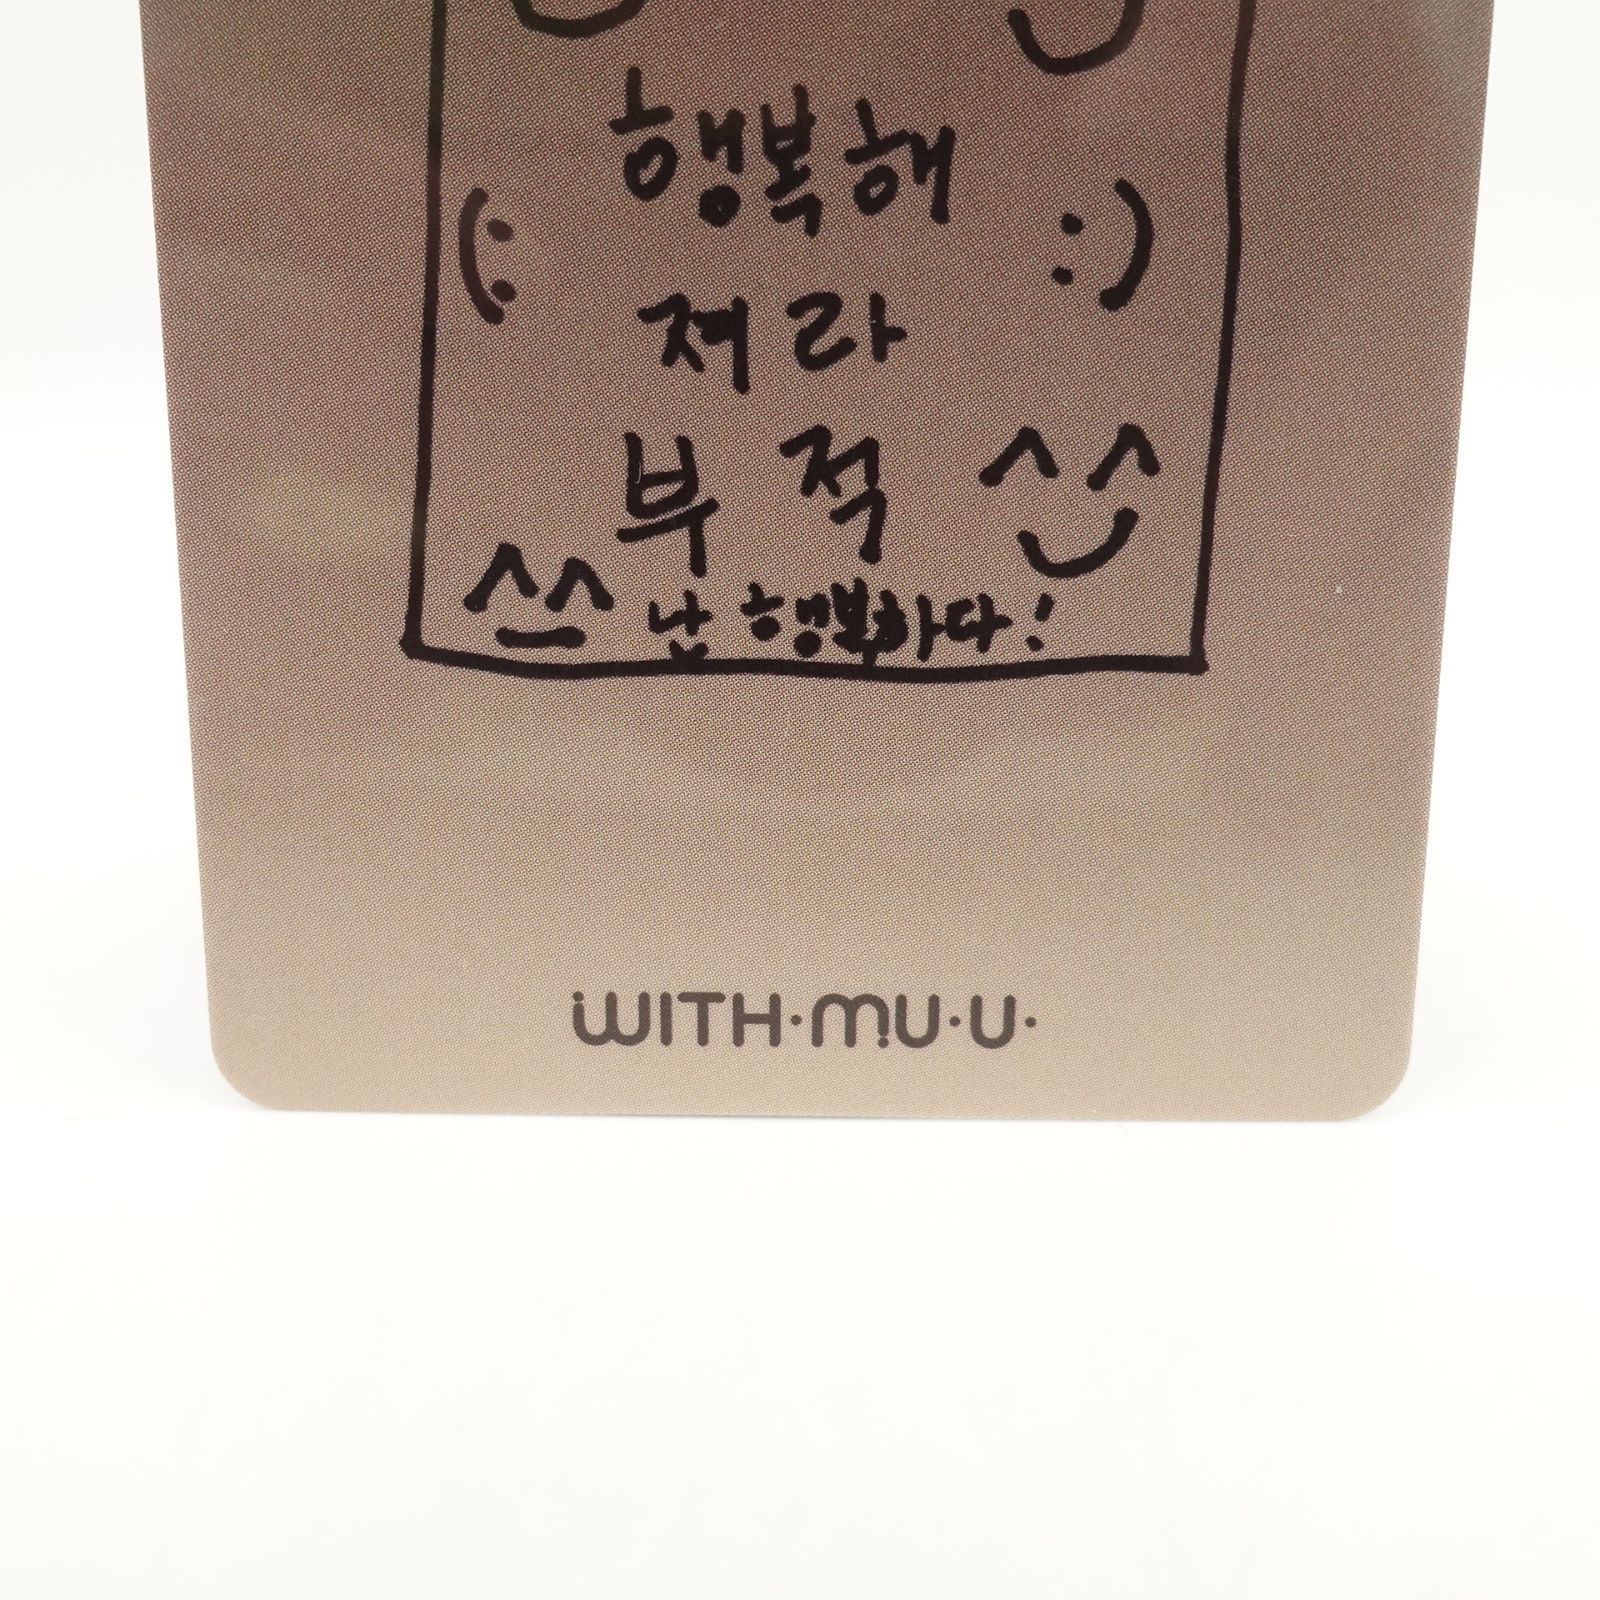 행복해
(: :)
져라
부적 ^^
^^ 난 행복하다!
WITH·MU·U·